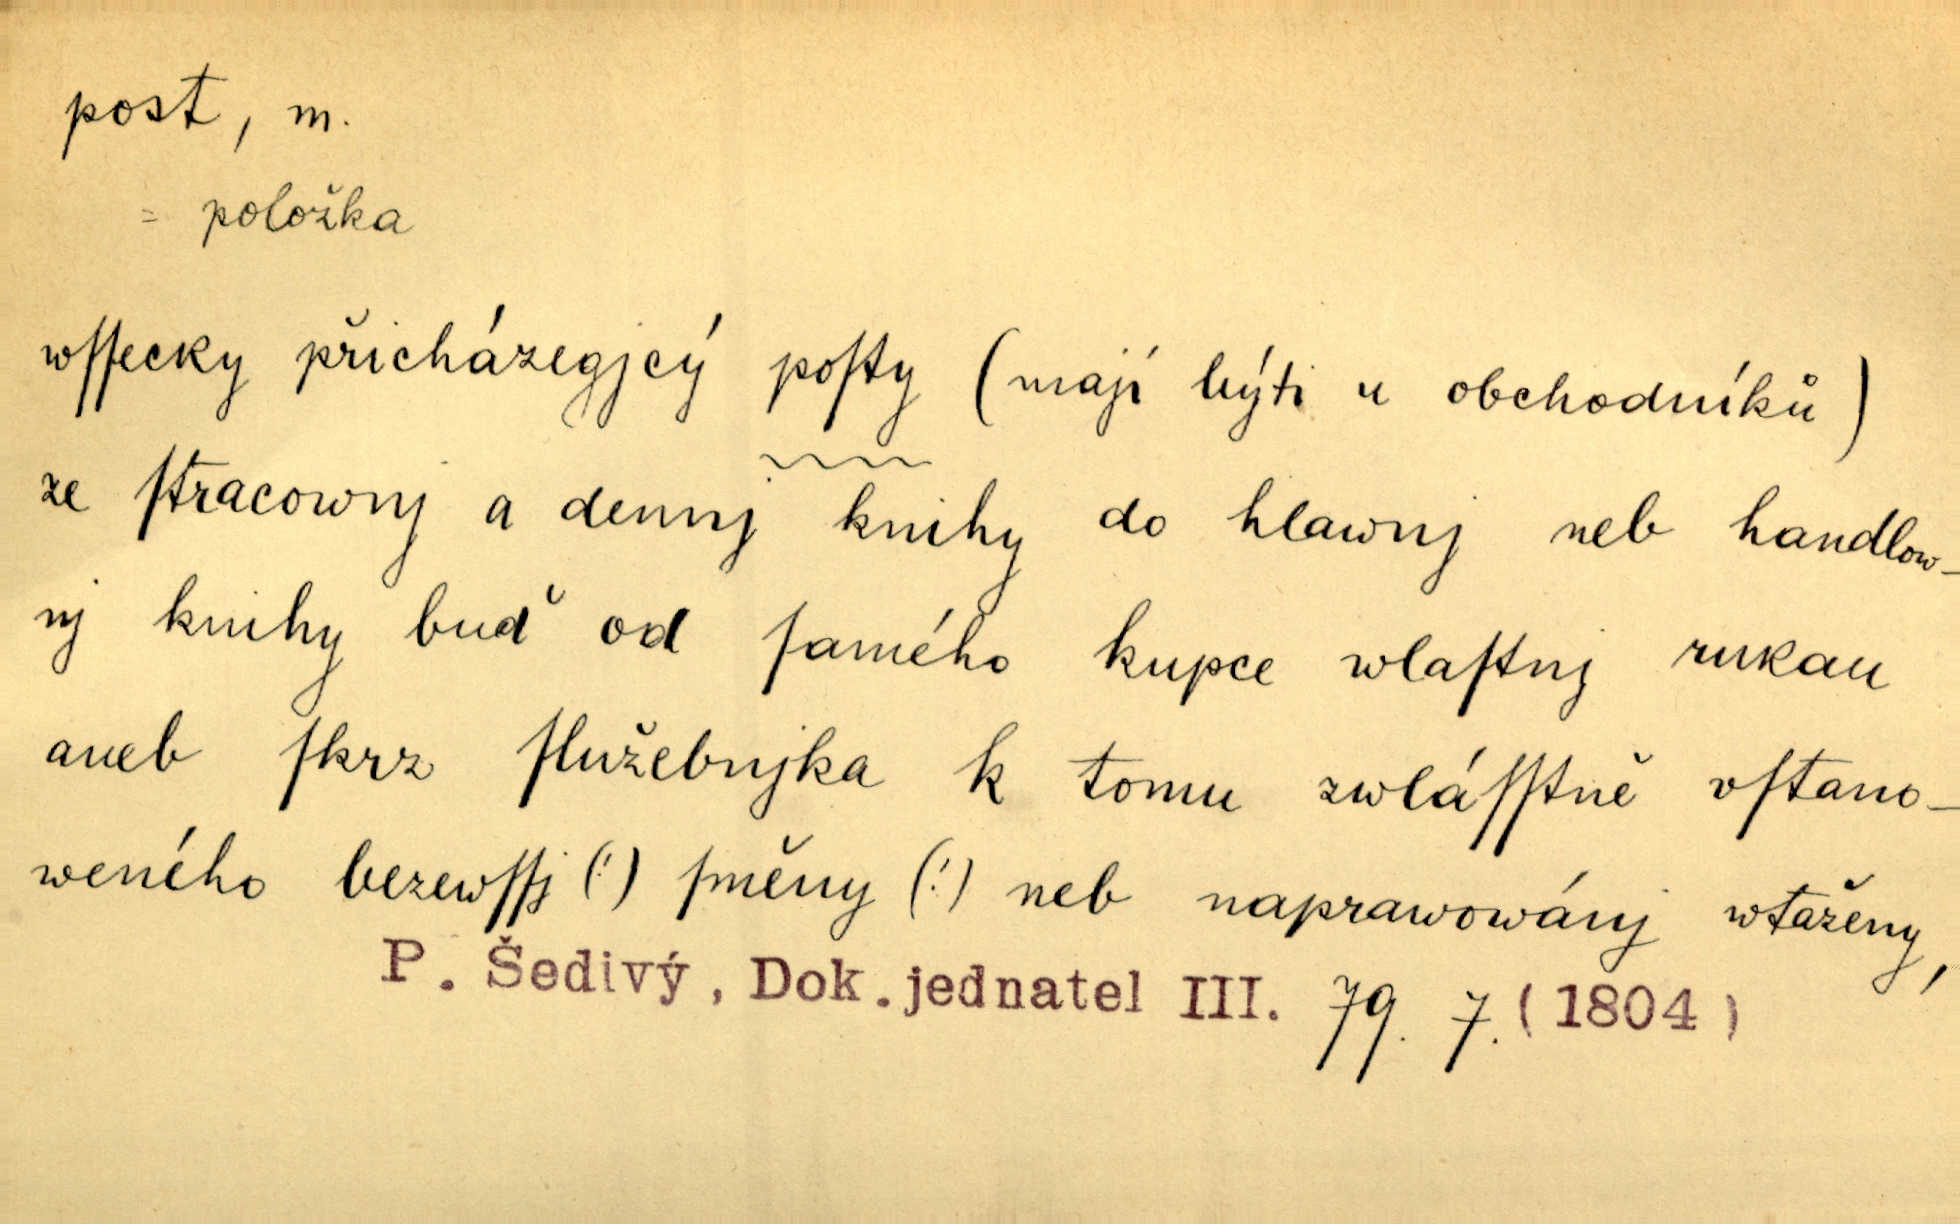 post, m.
= položka
wſſecky přicházegjcý poſty (mají býti u obchodníků)
ze ſtracownj a dennj knihy do hlawnj neb handlow-
nj knihy buď od ſamého kupce wlaſtnj rukau
aneb ſkrz ſlužebnjka k tomu zwláſſtně vſtano-
weného bezewſſj (!) ſměny (!) neb naprawowánj wtaženy,
P. Šedivý, Dok. jednatel III. 79. 7. (1804)